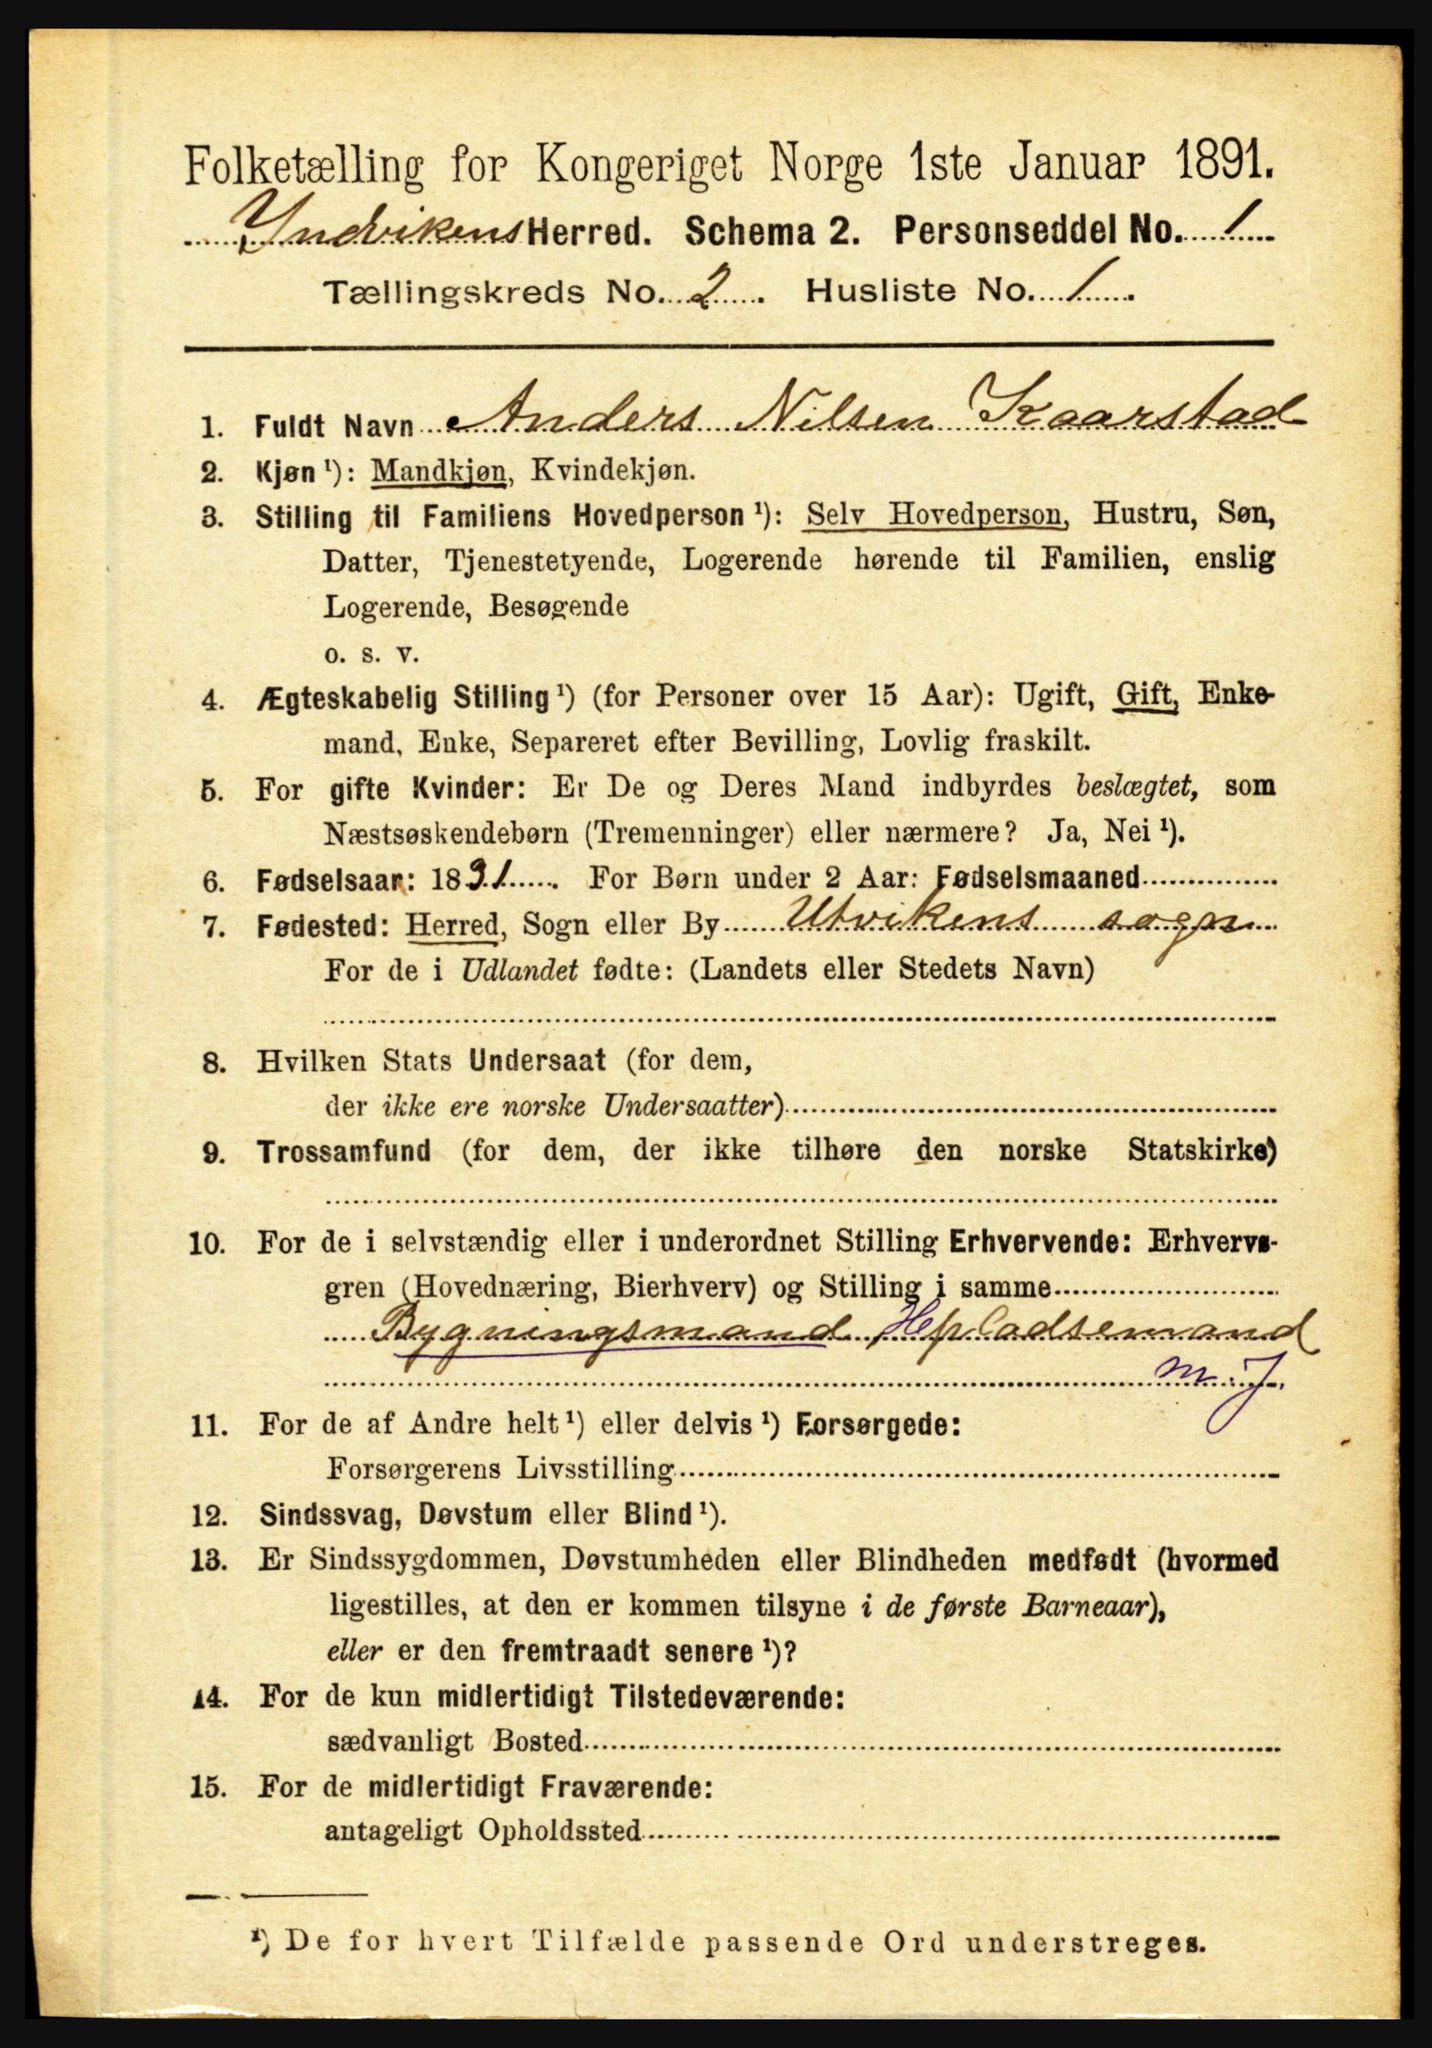 Folketælling for Kongeriget Norge 1ste Januar 1891.
Yndvikens Herred. Schema 2. Personseddel No. 1
Tællingskreds No. 2. Husliste No. 1.
1. Fuldt Navn Anders Nilsen Kaarstad
2. Kjøn ¹): Mandkjøn, Kvindekjøn.
3. Stilling til Familiens Hovedperson ¹): Selv Hovedperson, Hustru, Søn,
Datter, Tjenestetyende, Logerende hørende til Familien, enslig
Logerende, Besøgende
o. s. v.
4. Ægteskabelig Stilling ¹) (for Personer over 15 Aar): Ugift, Gift, Enke-
mand, Enke, Separeret efter Bevilling, Lovlig fraskilt.
5. For gifte Kvinder: Er De og Deres Mand indbyrdes beslægtet, som
Næstsøskendebørn (Tremenninger) eller nærmere? Ja, Nei ¹).
6. Fødselsaar: 1831. For Børn under 2 Aar: Fødselsmaaned
7. Fødested: Herred, Sogn eller By Utvikens sogn
For de i Udlandet fødte: (Landets eller Stedets Navn)
8. Hvilken Stats Undersaat (for dem,
der ikke ere norske Undersaatter)
9. Trossamfund (for dem, der ikke tilhøre den norske Statskirke)
10. For de i selvstændig eller i underordnet Stilling Erhvervende: Erhvervs-
gren (Hovednæring, Bierhverv) og Stilling i samme
Bygningsmand, Hp Ladsemand
m. J.
11. For de af Andre helt ¹) eller delvis ¹) Forsørgede:
Forsørgerens Livsstilling
12. Sindssvag, Døvstum eller Blind ¹).
13. Er Sindssygdommen, Døvstumheden eller Blindheden medfødt (hvormed
ligestilles, at den er kommen tilsyne i de første Barneaar),
eller er den fremtraadt senere ¹)?
14. For de kun midlertidigt Tilstedeværende:
sædvanligt Bosted
15. For de midlertidigt Fraværende:
antageligt Opholdssted
¹) De for hvert Tilfælde passende Ord understreges.